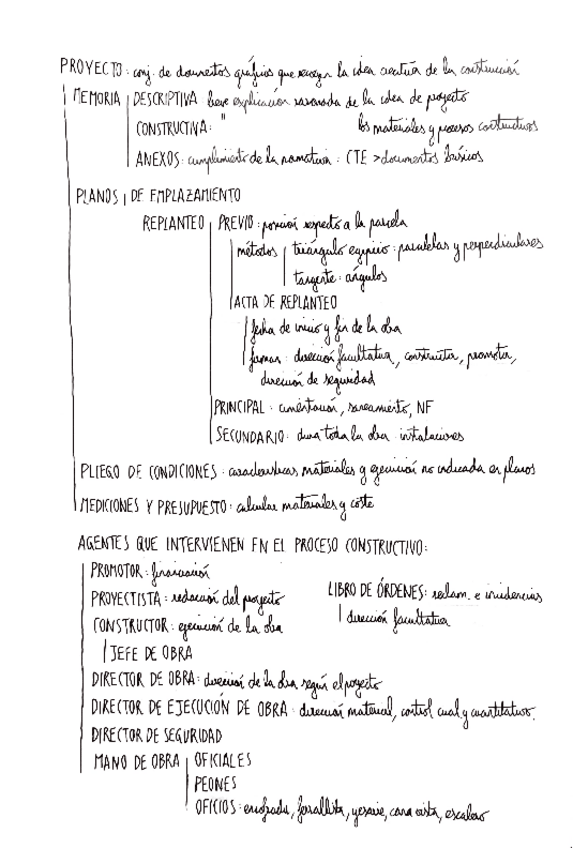 PROYECTO: conj. de documentos gráficos que recogen la idea creativa de la construcción
MEMORIA DESCRIPTIVA breve explicación razonada de la idea de proyecto
CONSTRUCTIVA: " los materiales y procesos constructivos
ANEXOS: cumplimiento de la normativa: CTE > documentos básicos
PLANOS DE EMPLAZAMIENTO
REPLANTEO PREVIO: posición respecto a la parcela
métodos triángulo egipcio: paralelas y perpendiculares
tangente: ángulos
ACTA DE REPLANTEO
fecha de inicio y fin de la obra
firman: dirección facultativa, constructor, promotor,
dirección de seguridad
PRINCIPAL: cimentación, saneamiento, NF
SECUNDARIO: dura toda la obra instalaciones
PLIEGO DE CONDICIONES: características materiales y ejecución no indicada en planos
MEDICIONES Y PRESUPUESTO: calcular materiales y coste
AGENTES QUE INTERVIENEN EN EL PROCESO CONSTRUCTIVO:
PROMOTOR: financiación
PROYECTISTA: redacción del proyecto
LIBRO DE ÓRDENES: reclam. e incidencias
CONSTRUCTOR: ejecución de la obra
dirección facultativa
JEFE DE OBRA
DIRECTOR DE OBRA: dirección de la obra según el proyecto
DIRECTOR DE EJECUCIÓN DE OBRA: dirección material, control cual y cuantitativo.
DIRECTOR DE SEGURIDAD
MANO DE OBRA OFICIALES
PEONES
OFICIOS: encofrador, ferrallista, yesaire, cara vista, escalero